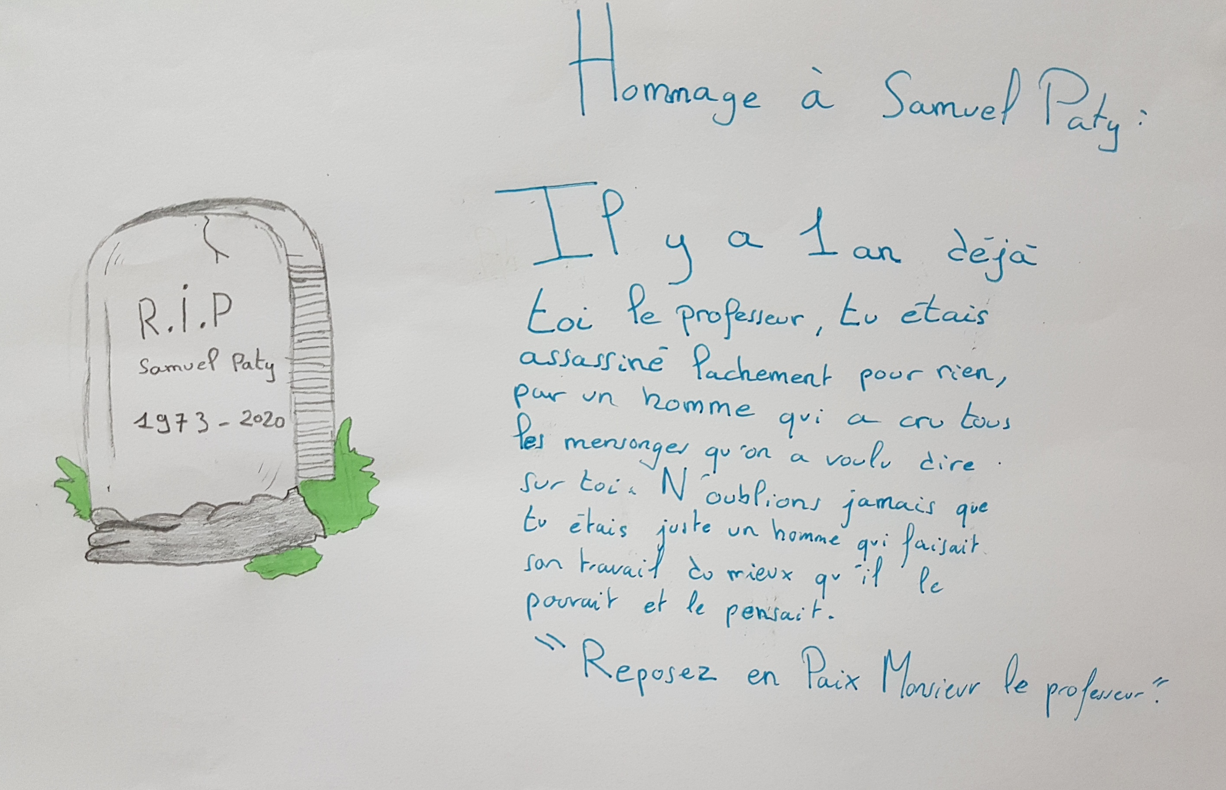 Hommage à Samuel Paty :
R.i.P
Samuel Paty
1973 - 2020
Il y a 1 an déjà
toi le professeur, tu étais
assassiné lachement pour rien,
par un homme qui a cru tous
les mensonges qu'on a voulu dire
sur toi. N'oublions jamais que
tu étais juste un homme qui faisait
son travail du mieux qu'il le
pouvait et le pensait.
"Reposez en Paix Monsieur le professeur".